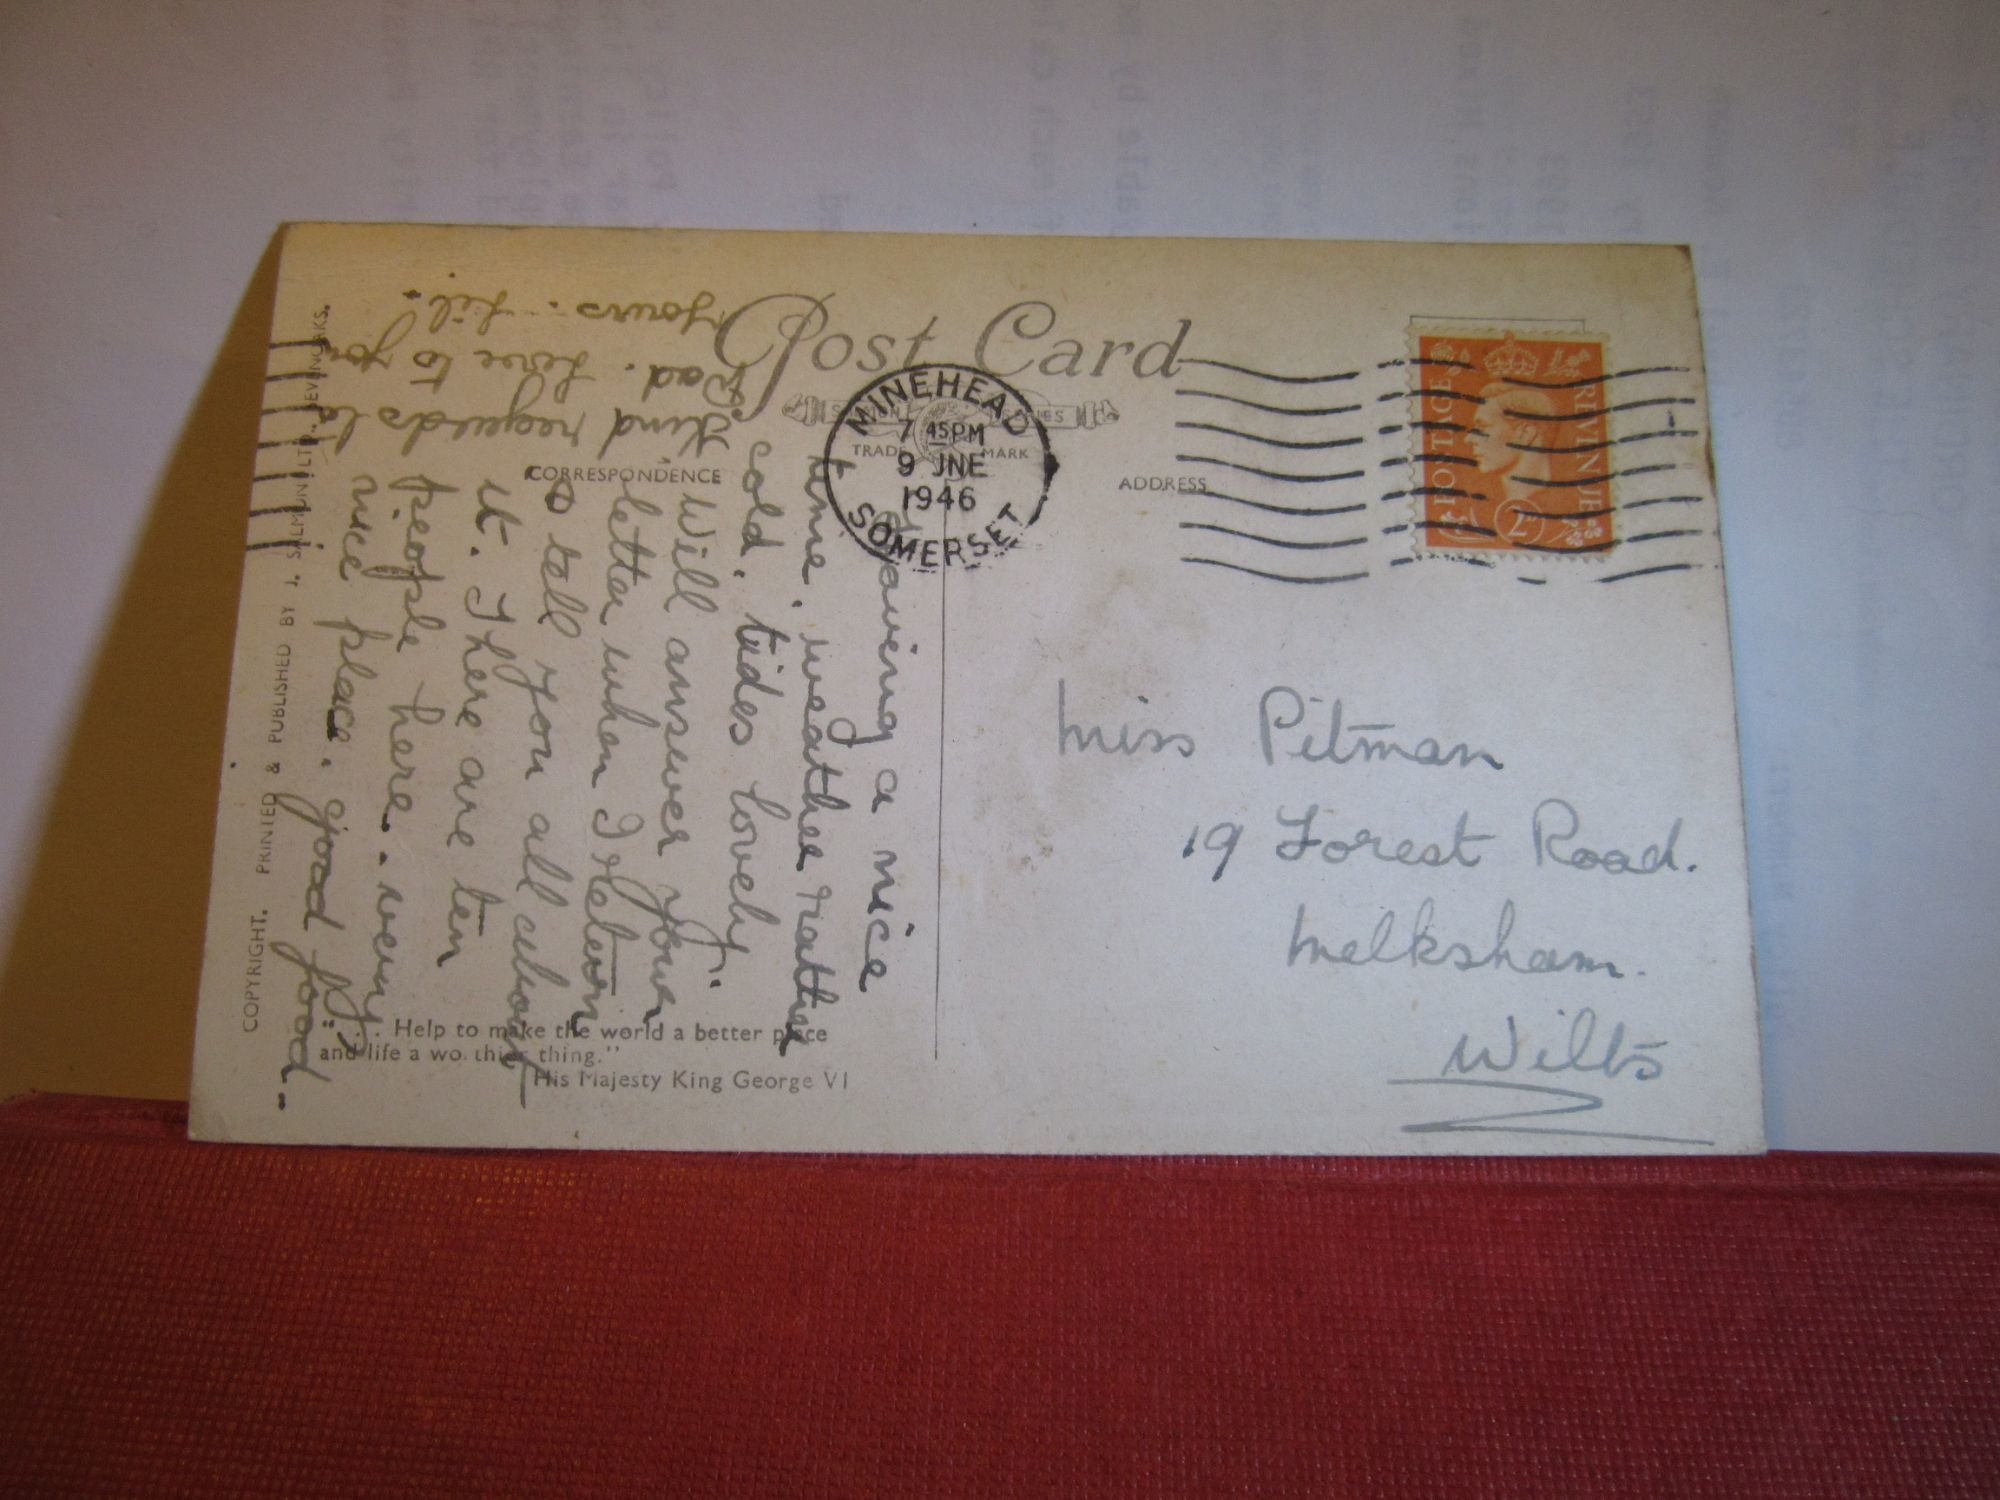 Post Card
SALMON SERIES
TRADE MARK
CORRESPONDENCE
ADDRESS
MINEHEAD
7 45 PM
9 JNE
1946
SOMERSET
POSTAGE
REVENUE
2D
Having a nice
time. weather rather
cold. tides lovely.
Will answer your
letter when I return
to tell you all about
it. There are ten
people here. very
nice place. good food
Kind regards to
Dad. Love to you
yours. Lil.
Miss Pitman
19 Forest Road.
Melksham.
Wilts
COPYRIGHT. PRINTED & PUBLISHED BY J. SALMON LTD., SEVENOAKS.
Help to make the world a better place
and life a worthier thing."
His Majesty King George VI